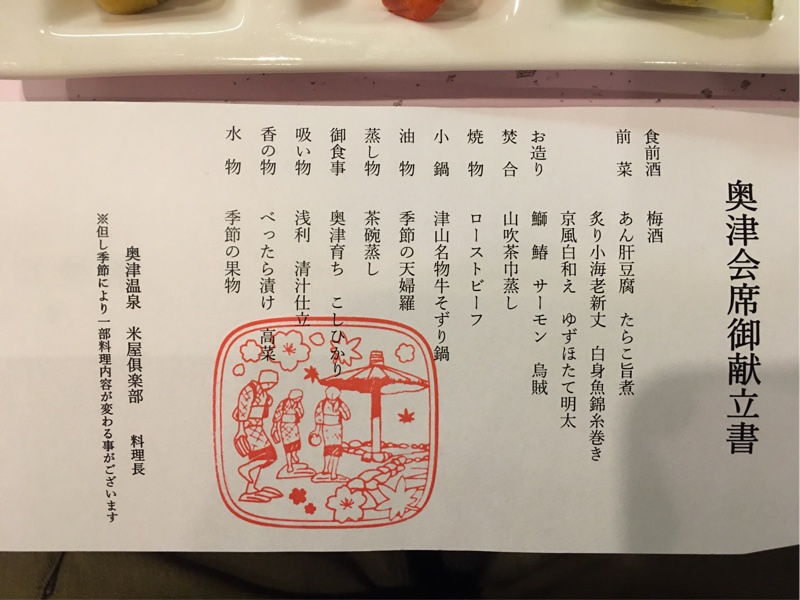 奥津会席御献立書
食前酒 梅酒
前菜 あん肝豆腐 たらこ旨煮
炙り小海老新丈 白身魚錦糸巻き
京風白和え ゆずほたて明太
お造り 鰤 鰆 サーモン 烏賊
焚合 山吹茶巾蒸し
焼物 ローストビーフ
小鍋 津山名物牛そずり鍋
油物 季節の天婦羅
蒸し物 茶碗蒸し
御食事 奥津育ち こしひかり
吸い物 浅利 清汁仕立
香の物 べったら漬け 高菜
水物 季節の果物
奥津温泉 米屋倶楽部 料理長
※但し季節により一部料理内容が変わる事がございます